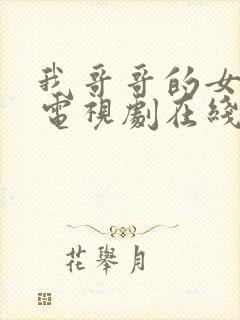 我哥哥的女
電視劇在綫
花舉月